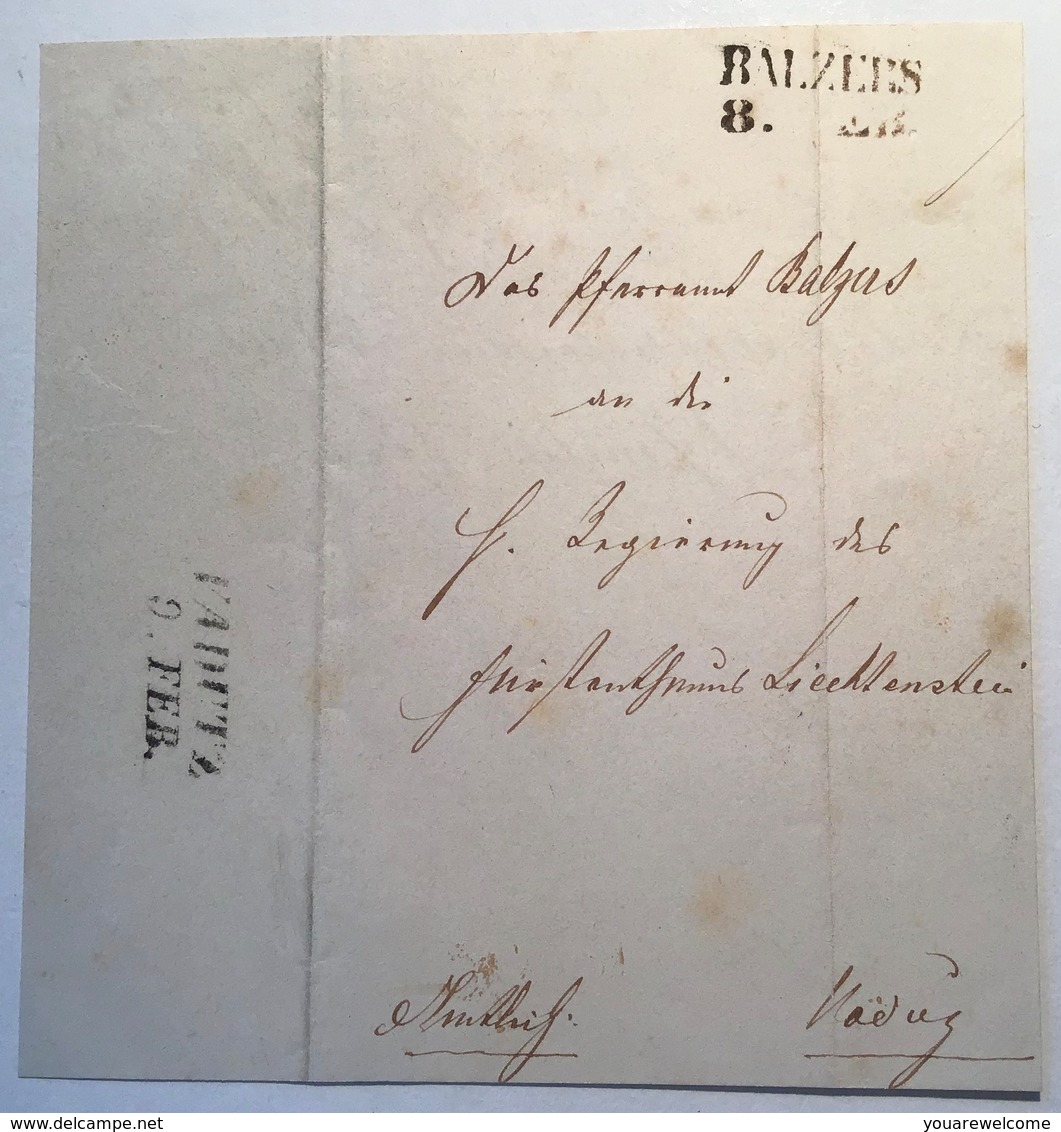 BALZERS
8.
Das Pfarramt Balzers
an die
H. Regierung des
Fürstenthums Liechtenstein
VADUTZ
9. FEB.
Amtlich.
Vaduz
delcampe.net
youarewelcome